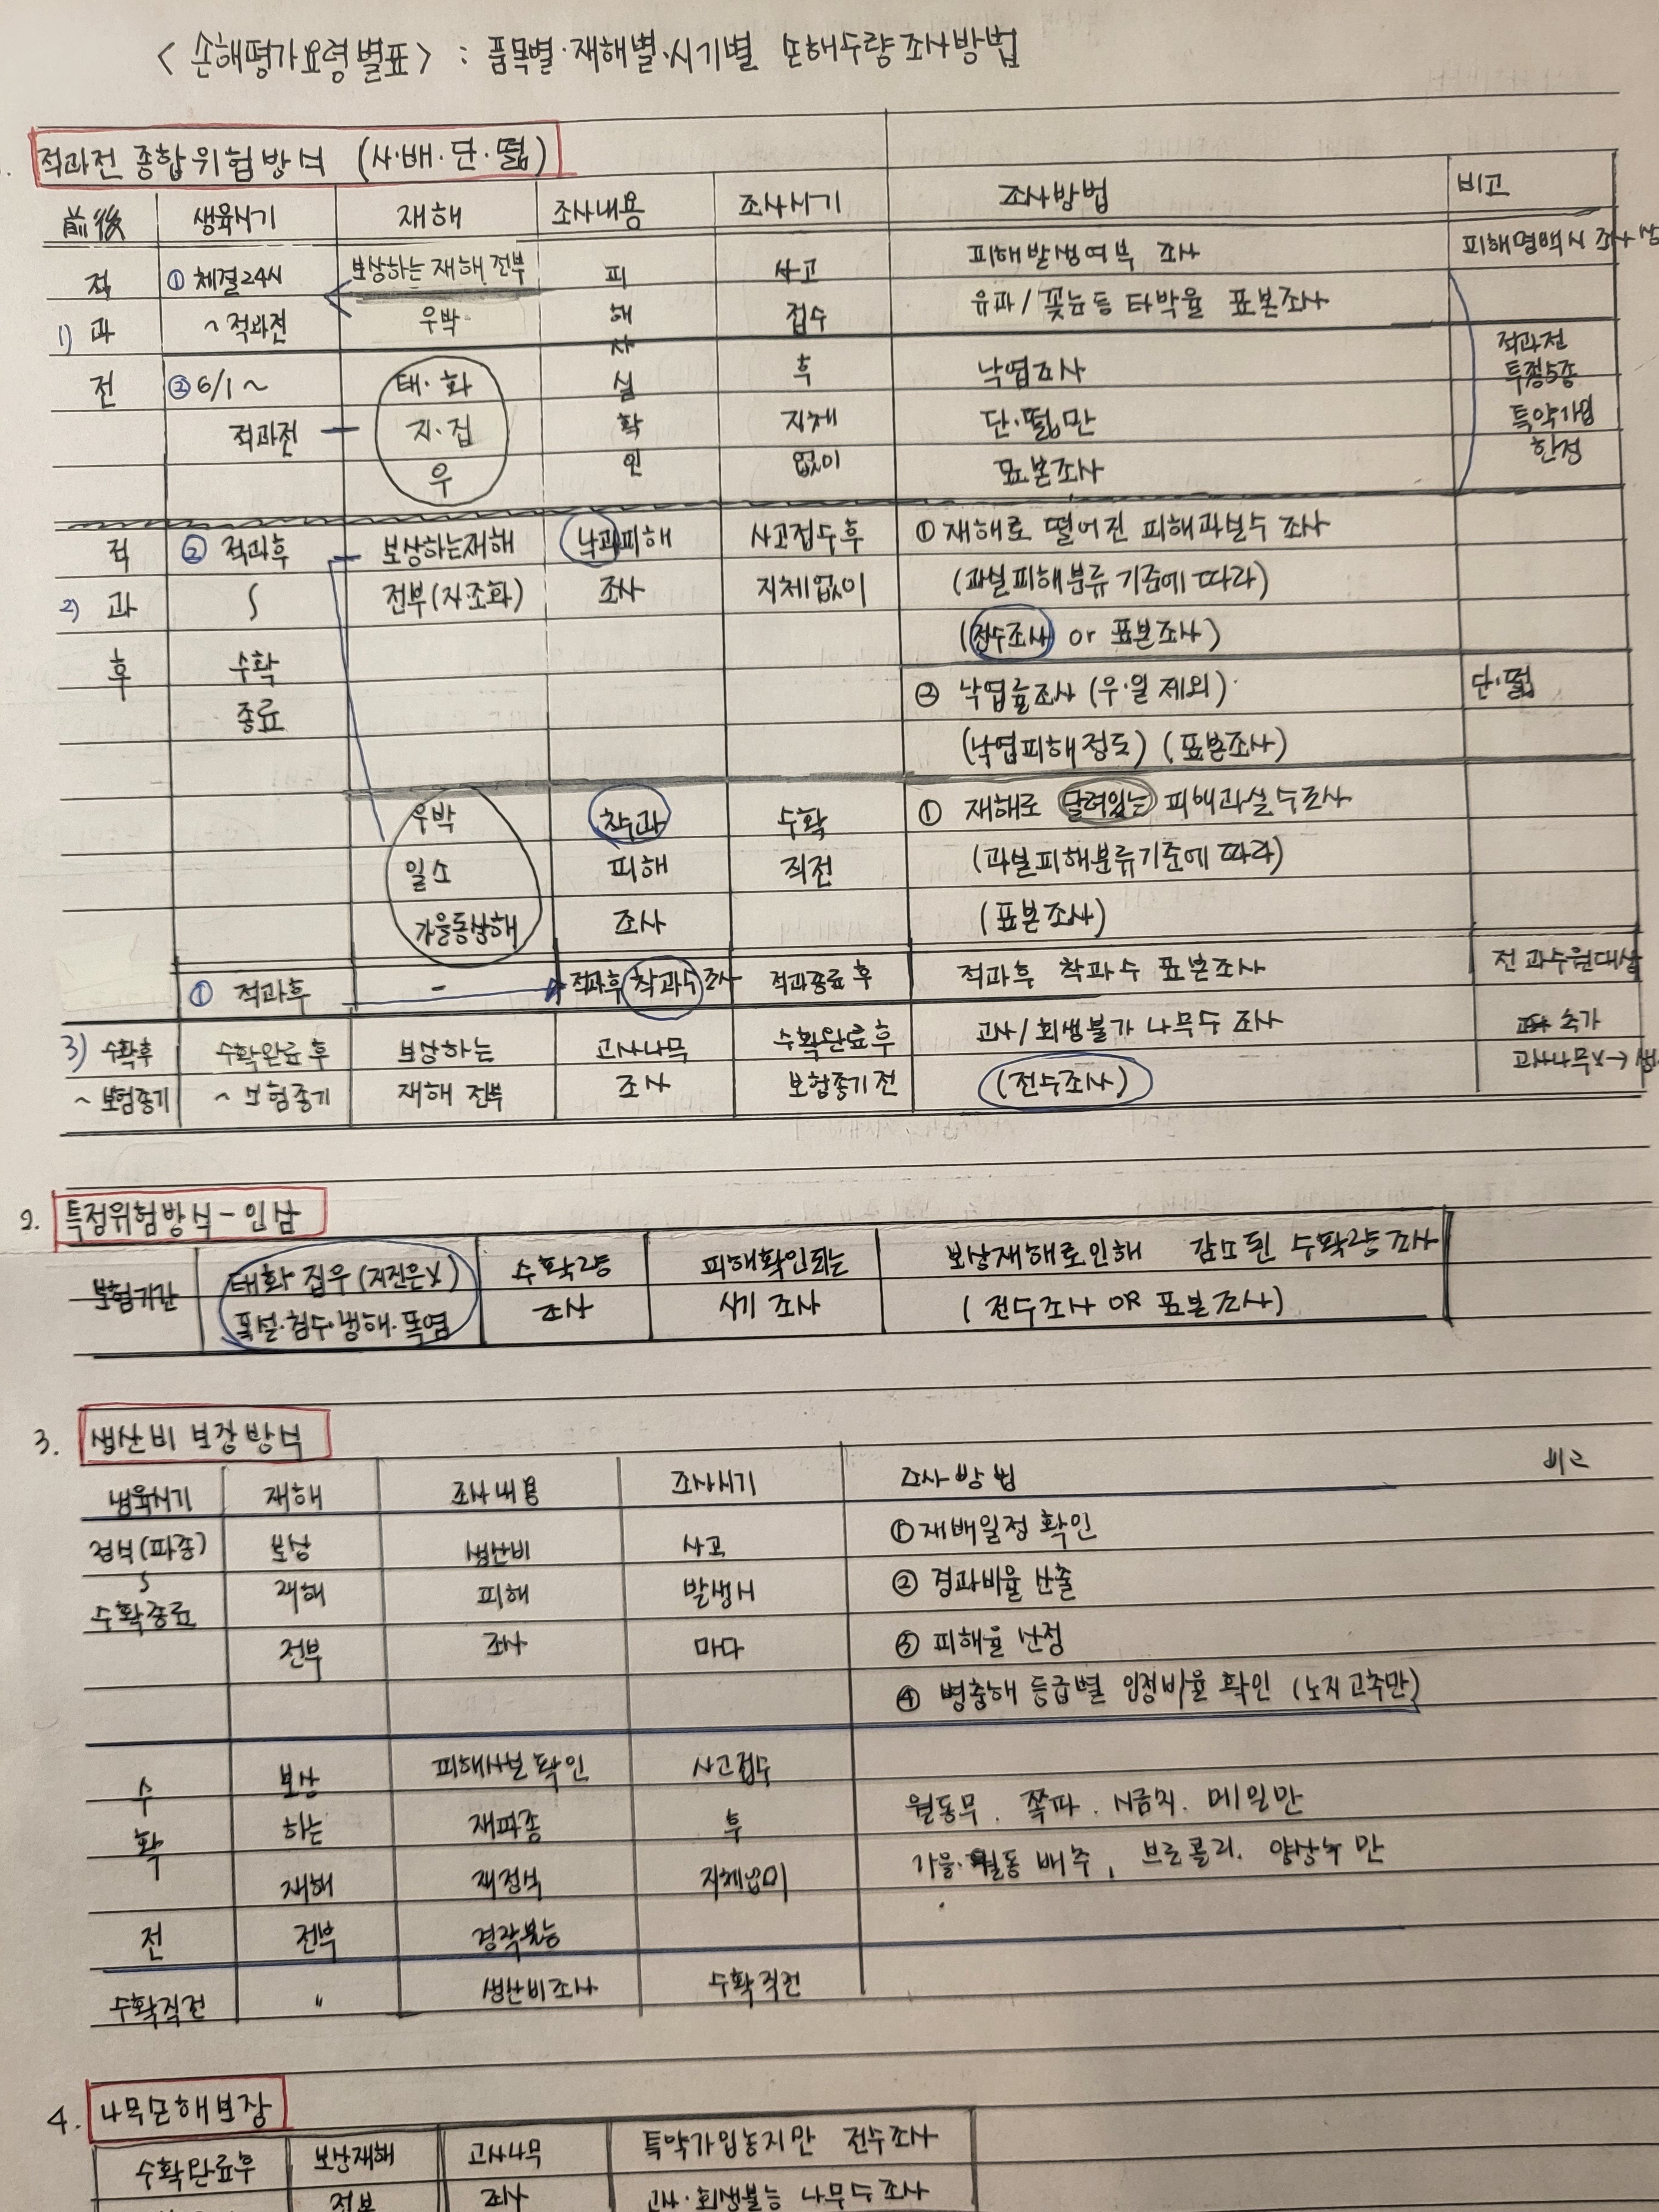 < 손해평가요령별표 > : 품목별·재해별·시기별 손해수량조사방법
적과전 종합위험방식 (사·배·단·떫)
前後 생육시기 재해 조사내용 조사시기 조사방법 비고
적 ① 체결24시 보상하는 재해 전부 피 사고 피해발생여부 조사 피해명백시 조사
1) 과 ~적과전 우박 해 접수 유과/꽃눈등 타박율 표본조사
사 적과전
전 ② 6/1~ 태·화 실 후 낙엽조사 특정5종
적과전 지·집 확 지체 단·떫만 특약가입
우 인 없이 표본조사 한정
적 ② 적과후 보상하는재해 낙과피해 사고접수후 ① 재해로 떨어진 피해과실수 조사
2) 과 ~ 전부(자·조·화) 조사 지체없이 (과실피해분류 기준에 따라)
후 수확 (전수조사 or 표본조사)
종료 ② 낙엽률조사 (우·일 제외) 단·떫
(낙엽피해정도) (표본조사)
우박 착과 수확 ① 재해로 달려있는 피해과실수조사
일소 피해 직전 (과실피해분류기준에 따라)
가을동상해 조사 (표본조사)
① 적과후 - 적과후 착과수조사 적과종료후 적과후 착과수 표본조사 전 과수원대상
3) 수확후 수확완료후 보상하는 고사나무 수확완료후 고사/회생불가 나무수 조사 추가
~보험종기 ~보험종기 재해 전부 조사 보험종기전 (전수조사) 고사나무X→
2. 특정위험방식-인삼
보험기간 태화 집우(지진은X) 수확량 피해확인되는 보상재해로인해 감소된 수확량조사
폭설·침수·냉해·폭염 조사 시기 조사 (전수조사 OR 표본조사)
3. 생산비 보장방식
생육시기 재해 조사내용 조사시기 조사방법 비고
정식(파종) 보상 생산비 사고 ① 재배일정 확인
~ 재해 피해 발생시 ② 경과비율 산출
수확종료 전부 조사 마다 ③ 피해율 산정
④ 병충해 등급별 인정비율 확인 (노지고추만)
수 보상 피해사실확인 사고접수
확 하는 재파종 후 월동무. 쪽파. 시금치. 메밀만
재해 재정식 지체없이 가을·월동 배추, 브로콜리. 양상추만
전 전부 경작불능
수확직전 〃 생산비조사 수확직전
4. 나무손해보장
수확완료후 보상재해 고사나무 특약가입농지만 전수조사
전부 조사 고사·회생불능 나무수조사